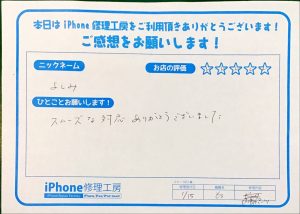 本日は iPhone 修理工房をご利用頂きありがとうございます！
ご感想をお願いします！
ニックネーム
お店の評価
☆☆☆☆☆
よしみ
ひとことお願いします！
スムーズな対応ありがとうございました
iPhone修理工房
1/15